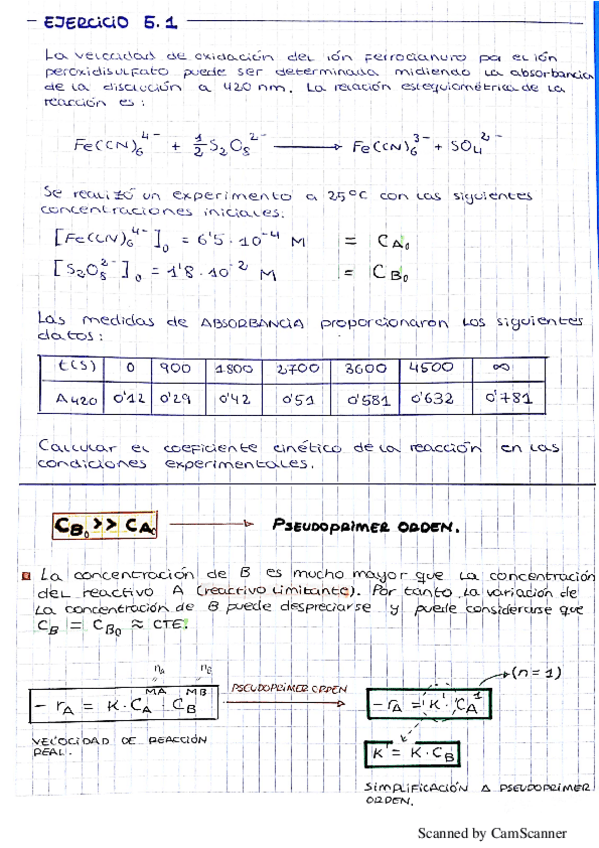 EJERCICIO 5.1
La velocidad de oxidación del ión ferrocianuro por el ión
peroxidisulfato puede ser determinada midiendo la absorbancia
de la disolución a 420 nm. La relación estequiométrica de la
reacción es:
Fe(CN)₆⁴⁻ + 1/2 S₂O₈²⁻ → Fe(CN)₆³⁻ + SO₄²⁻
Se realizó un experimento a 25ºC con las siguientes
concentraciones iniciales:
[Fe(CN)₆⁴⁻]₀ = 6'5·10⁻⁴ M = CA₀
[S₂O₈²⁻]₀ = 1'8·10⁻² M = CB₀
Las medidas de ABSORBANCIA proporcionaron los siguientes
datos:
t(s) 0 900 1800 2700 3600 4500 ∞
A420 0'12 0'29 0'42 0'51 0'581 0'632 0'781
Calcular el coeficiente cinético de la reacción en las
condiciones experimentales.
CB₀ >> CA₀ → PSEUDOPRIMER ORDEN.
La concentración de B es mucho mayor que la concentración
del reactivo A (reactivo limitante). Por tanto, la variación de
la concentración de B puede despreciarse y puede considerarse que
CB = CB₀ ≈ CTE.
nA nB
(n=1)
-rA = K·CA^MA CB^MB PSEUDOPRIMER ORDEN → -rA = K' CA¹
VELOCIDAD DE REACCIÓN
REAL.
K' = K·CB
SIMPLIFICACIÓN A PSEUDOPRIMER
ORDEN.
Scanned by CamScanner